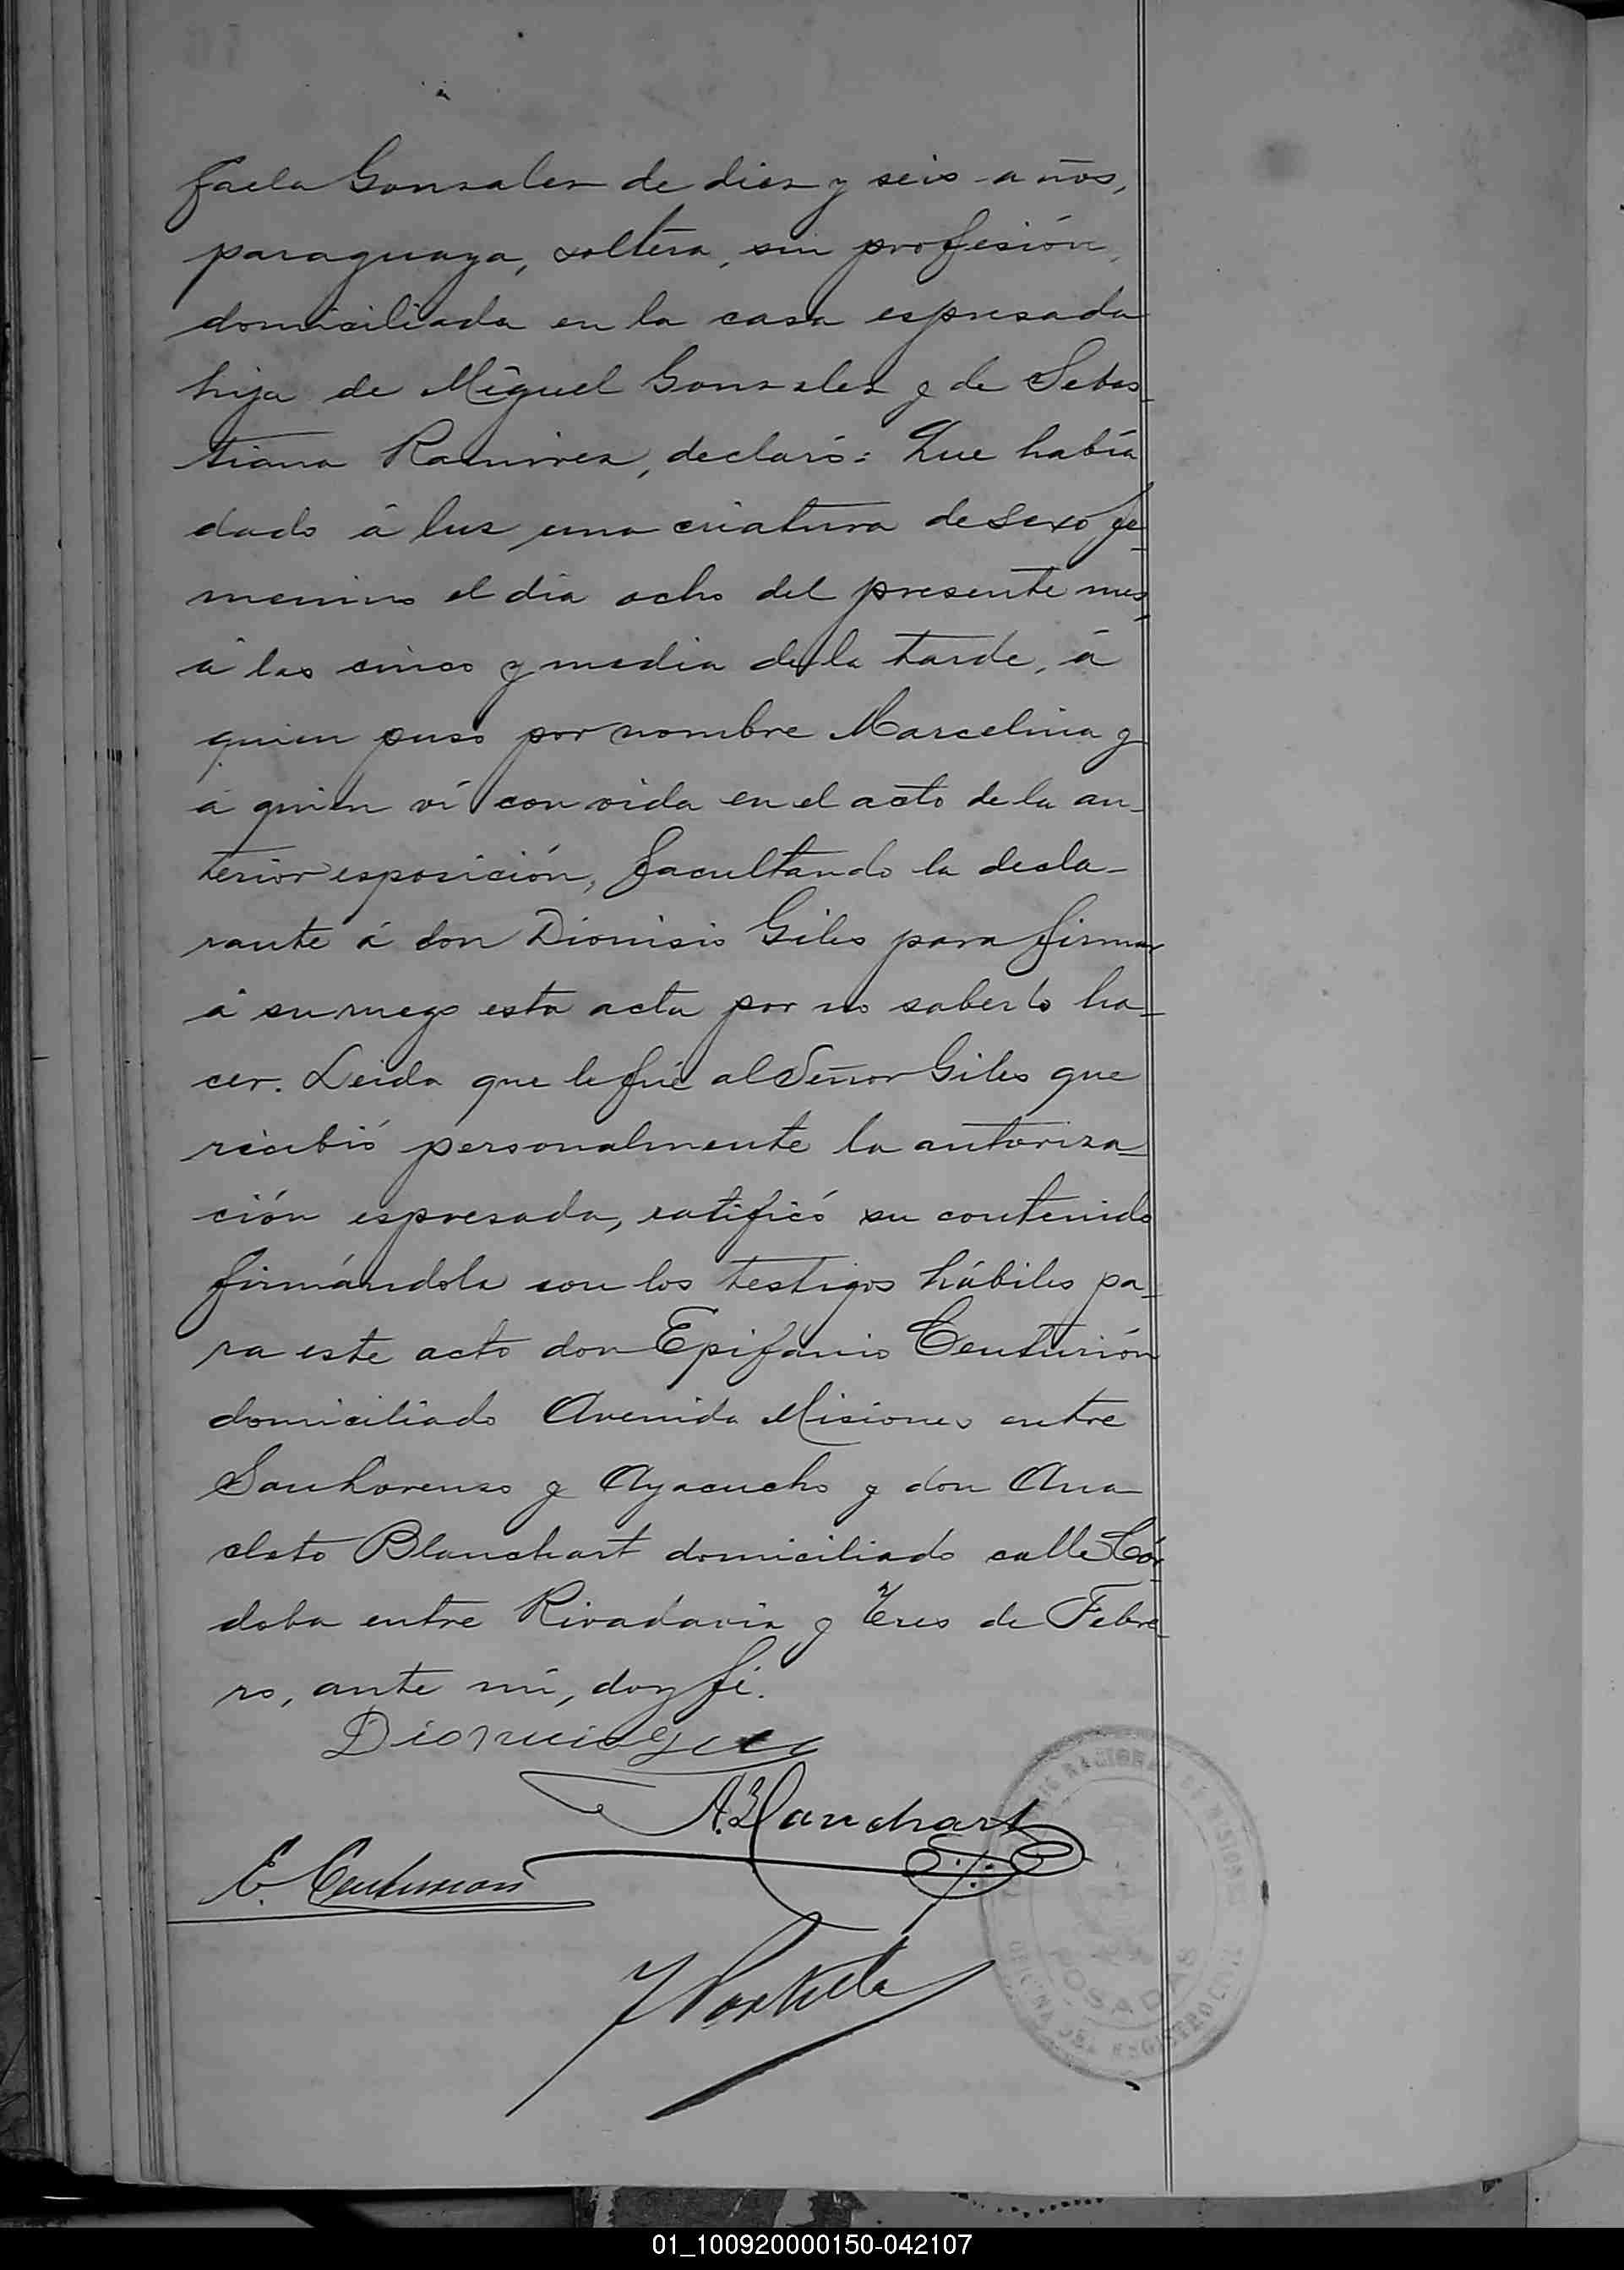 faela Gonzalez de diez y seis años,
paraguaya, soltera, sin profesión,
domiciliada en la casa espresada
hija de Miguel Gonzalez y de Sebas
tiana Ramirez, declaró: Que había
dado á luz una criatura de sexo fe-
menino el dia ocho del presente mes,
á las cinco y media de la tarde, á
quien puso por nombre Marcelina y
á quien ví con vida en el acto de la an-
terior esposición, facultando la decla-
rante á don Dionisio Giles para firmar
á su ruego esta acta por no saberlo ha-
cer. Leida que le fué al Señor Giles que
recibió personalmente la autoriza-
ción espresada, ratificó su contenido
firmándola con los testigos hábiles pa-
ra este acto don Epifanio Centurión
domiciliado Avenida Misiones entre
San Lorenzo y Ayacucho y don Ana
cleto Blanchart domiciliado calle Cór
doba entre Rivadavia y Tres de Febre-
ro, ante mí, doy fé.
A. Blanchart
E. Centurion
NACIONAL DE MISIONES
POSADAS
OFICINA DEL REGISTRO CIVIL
01_100920000150-042107